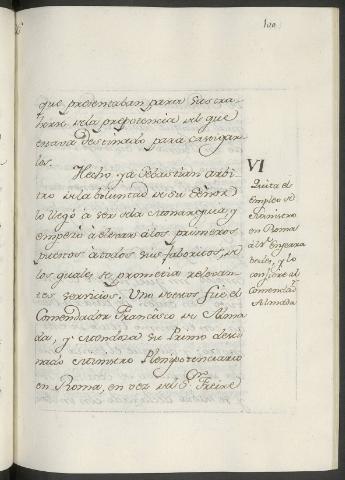 100
que presentaban para sustra-
herse de la prepotencia del que
estava destinado para castigar-
los.
Hecho ya Sebastian arbi-
tro de la voluntad de su Señor
lo llegó a ser de la Monarquia, y
empezó à elevar à los primeros
puestos à todos sus favoritos, de
los quales se prometia relevan-
tes servicios. Uno de estos fue el
Comendador Francisco de Alma-
da, y Mendoza su Primo desti-
nado Ministro Plenipotenciario
en Roma, en vez del Freire
VI
Quita el
empleo de
Ministro
en Roma
à
y lo
confiere al
Comendador
Almada